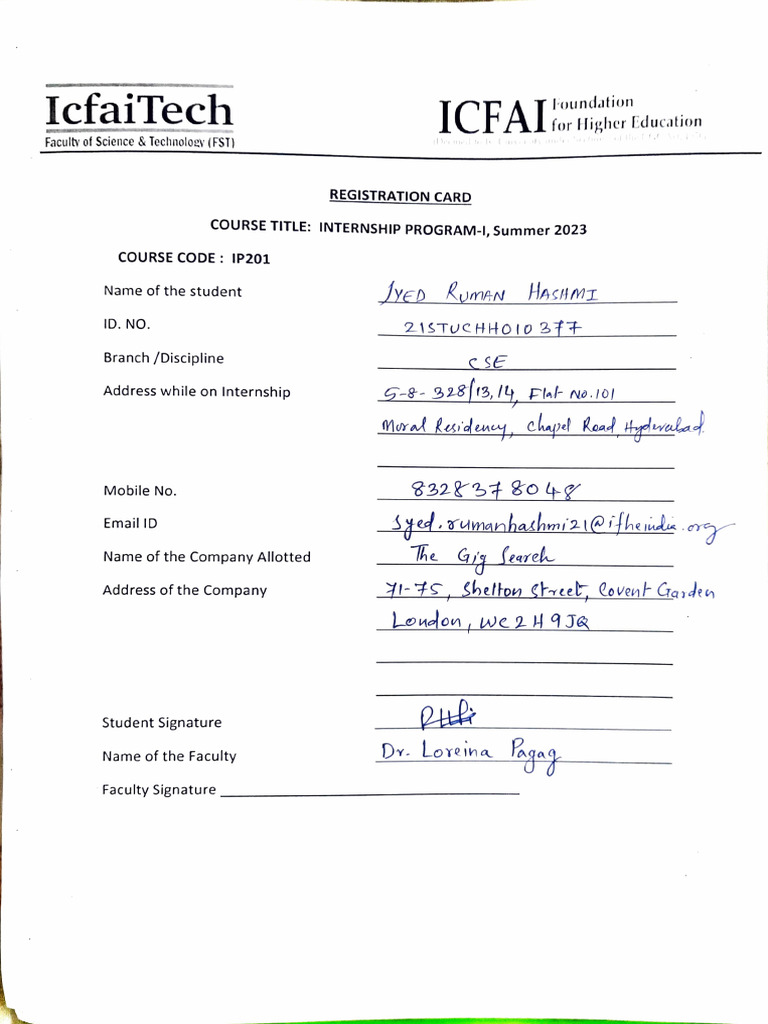 IcfaiTech
Faculty of Science & Technology (FST)
ICFAI Foundation
for Higher Education
REGISTRATION CARD
COURSE TITLE: INTERNSHIP PROGRAM-I, Summer 2023
COURSE CODE : IP201
Name of the student SYED RUMAN HASHMI
ID. NO. 21STUCHH010377
Branch /Discipline CSE
Address while on Internship 5-8-328/13,14, Flat No.101
Moral Residency, Chapel Road, Hyderabad.
Mobile No. 8328378048
Email ID syed.rumanhashmi21@ifheindia.org
Name of the Company Allotted The Gig Search
Address of the Company 71-75, Shelton Street, Covent Garden
London, WC2H9JQ
Student Signature
Name of the Faculty Dr. Loreina Pagag
Faculty Signature